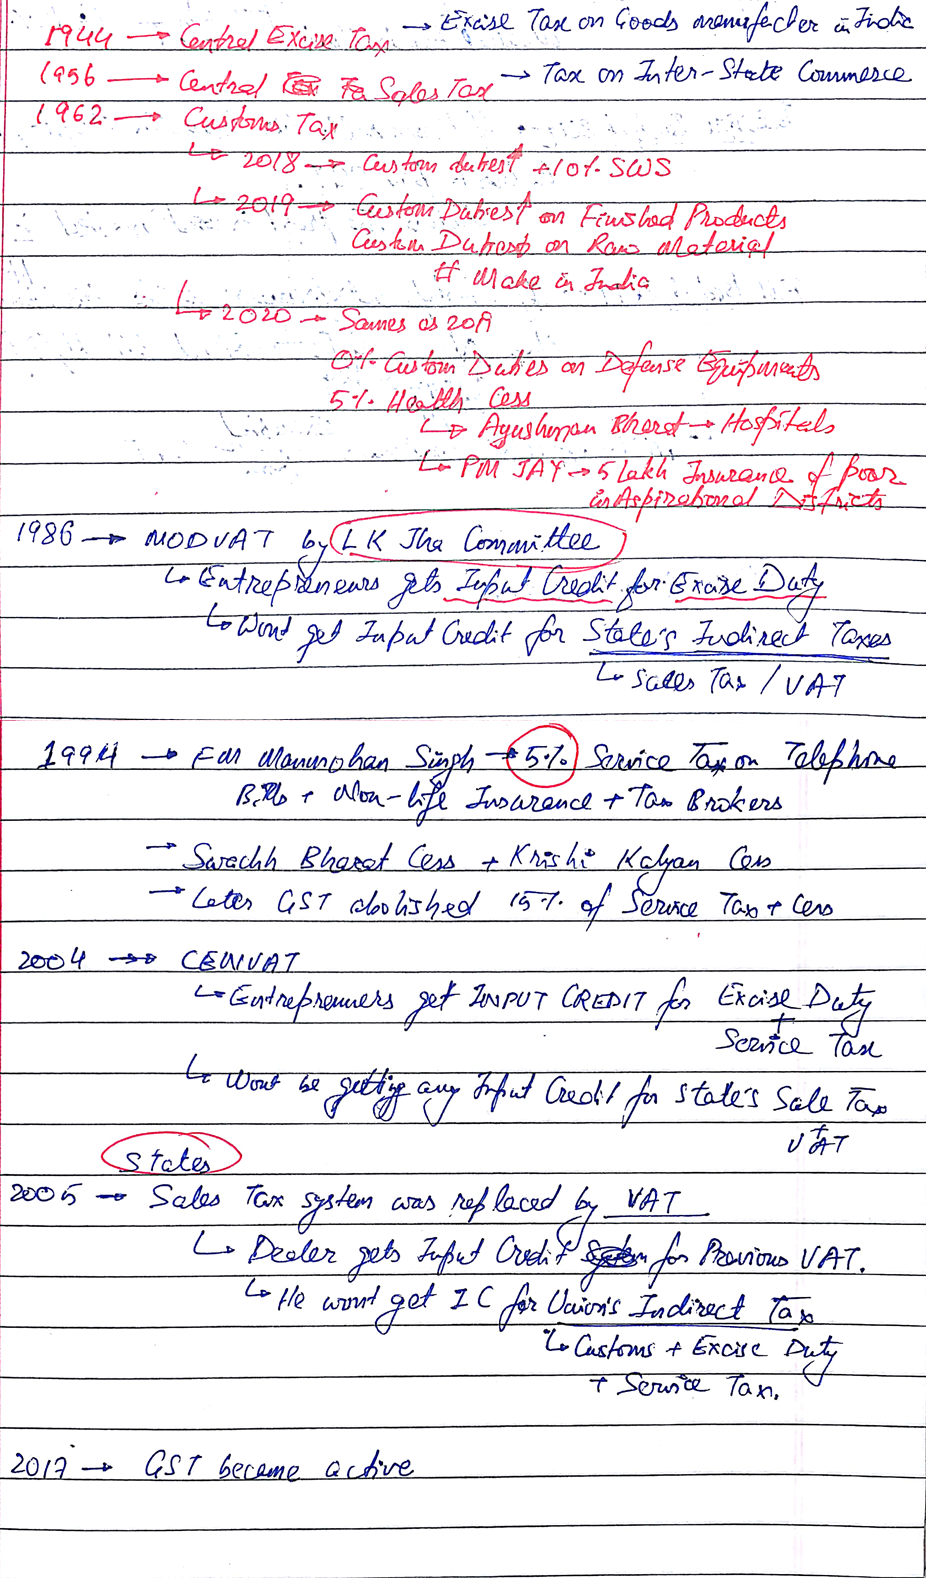 1944 → Central Excise Tax → Excise Tax on Goods manufacter in India
1956 → Central Sales Tax → Tax on Inter-State Commerce
1962 → Customs Tax
↳ 2018 → Custom duties↑ +10% SWS
↳ 2019 → Custom Duties↑ on Finished Products
Custom Duties↓ on Raw Material
# Make in India
↳ 2020 → Sames as 2019
0% Custom Duties on Defense Equipments
5% Health Cess
↳ Ayushman Bharat → Hospitals
↳ PM JAY → 5 lakh Insurance of poor
in Aspirational Districts
1986 → MODVAT by LK Jha Committee
↳ Entrepreneurs gets Input Credit for Excise Duty
↳ Wont get Input Credit for State's Indirect Taxes
↳ Sales Tax / VAT
1994 → FM Manmohan Singh → 5% Service Tax on Telephone
Bills + Non-life Insurance + Tax Brokers
→ Swachh Bharat Cess + Krishi Kalyan Cess
→ Later GST abolished 15% of Service Tax + Cess
2004 → CENVAT
↳ Entreprenuers get INPUT CREDIT for Excise Duty
+
Service Tax
↳ Wont be getting any Input Credit for State's Sale Tax
+
VAT
States
2005 → Sales Tax system was replaced by VAT
↳ Dealer gets Input Credit for Previous VAT.
↳ He wont get IC for Union's Indirect Tax
↳ Customs + Excise Duty
+ Service Tax.
2017 → GST became active